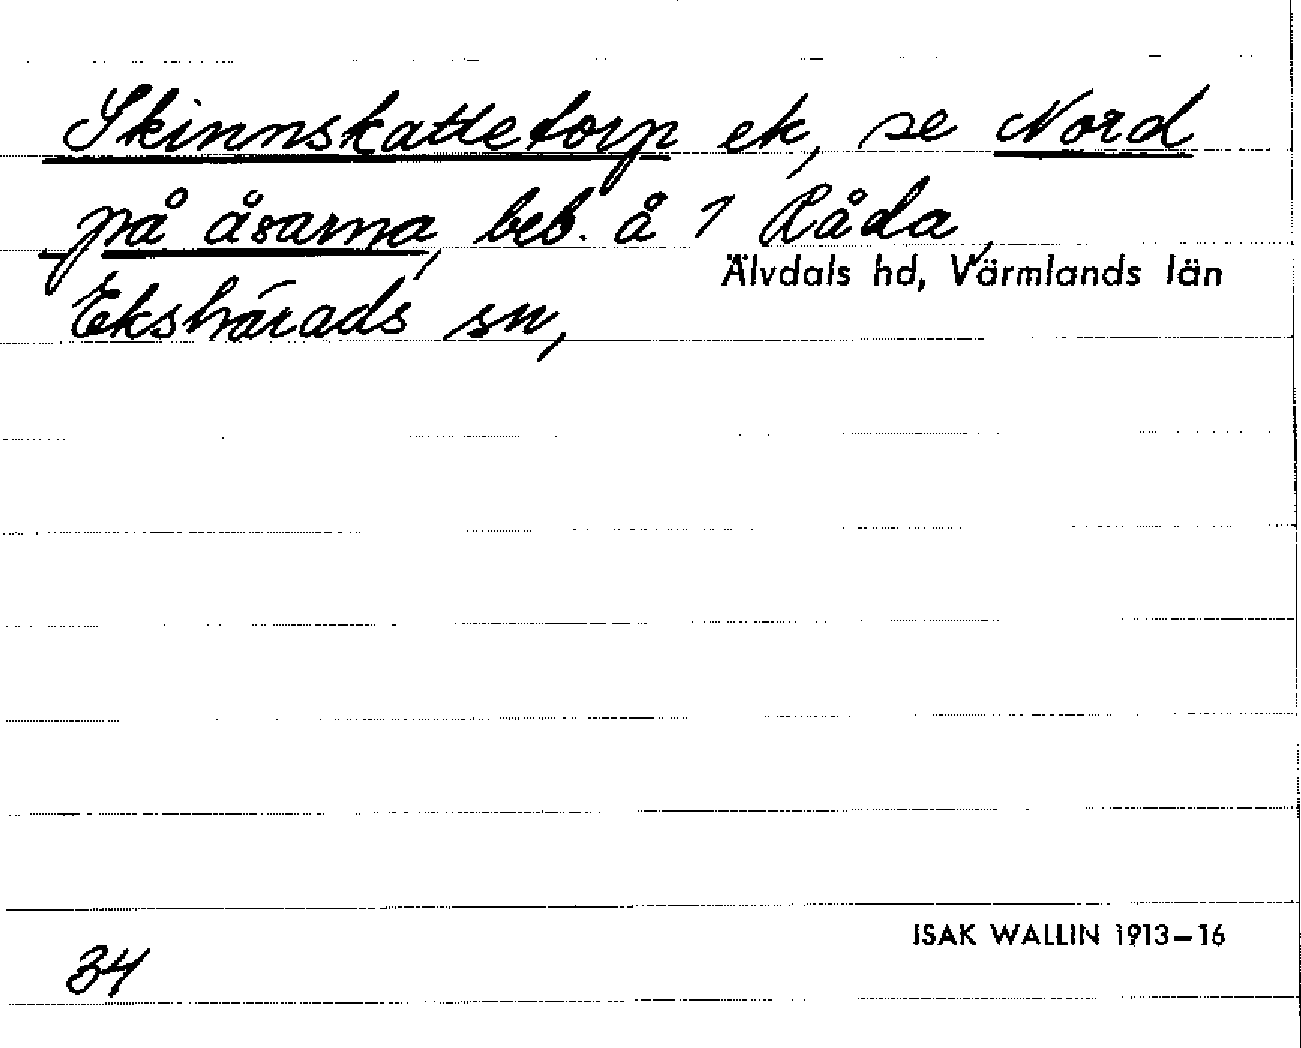 Skinnskattetorp ek, se Nord
på åsarna, beb. å 1 Råda,
Älvdals hd, Värmlands län
Ekshärads sn,
ISAK WALLIN 1913–16
34